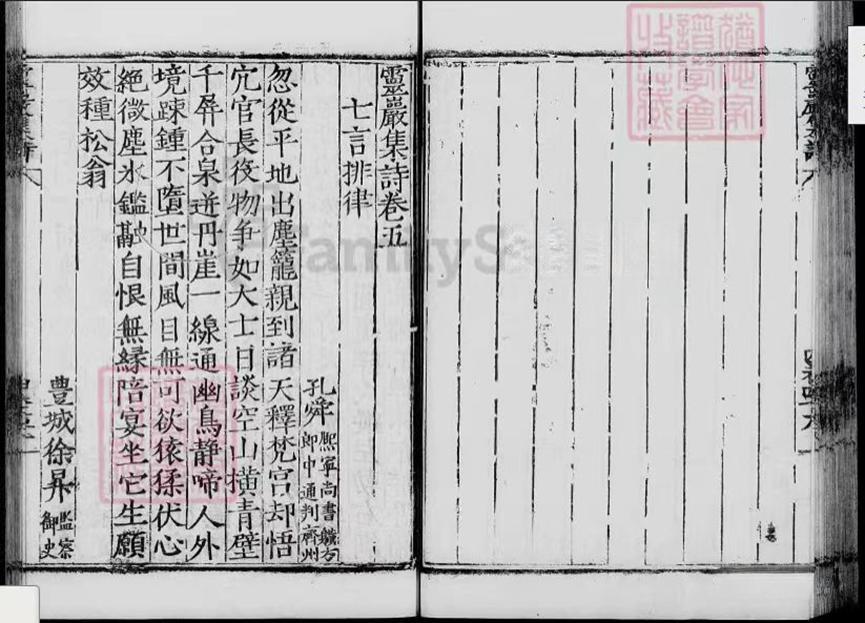 靈巖集詩卷五
七言排律
孔舜 熙寧尚書職方郎中通判濟州
忽從平地出塵籠親到諸天釋梵宮却悟
宂官長役物爭如大士日談空山橫青壁
千屏合泉迸丹崖一線通幽鳥靜啼人外
境踈鍾不墮世間風目無可欲猿猱伏心
絶微塵氷鑑融自恨無縁陪宴坐它生願
效種松翁
豊城徐昇 監察御史